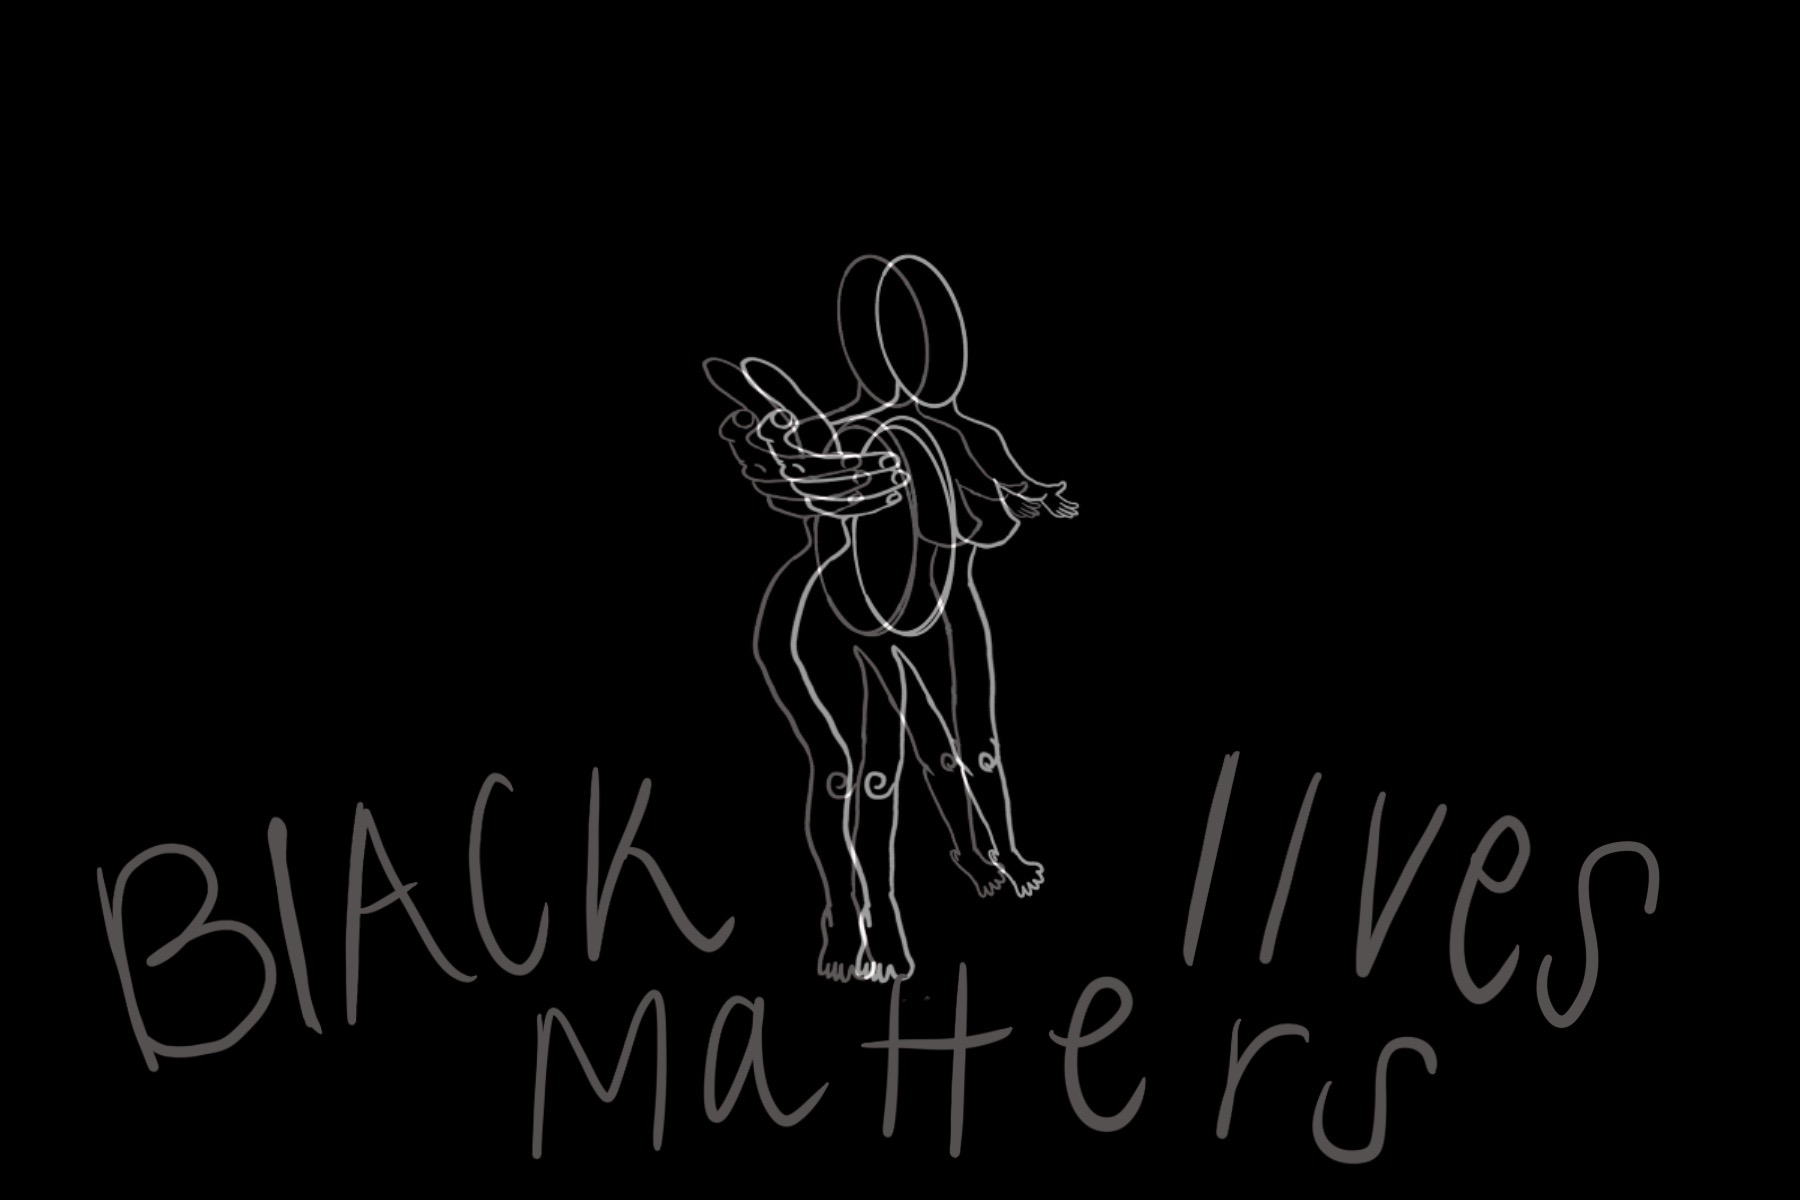 BlACK lives
Matters